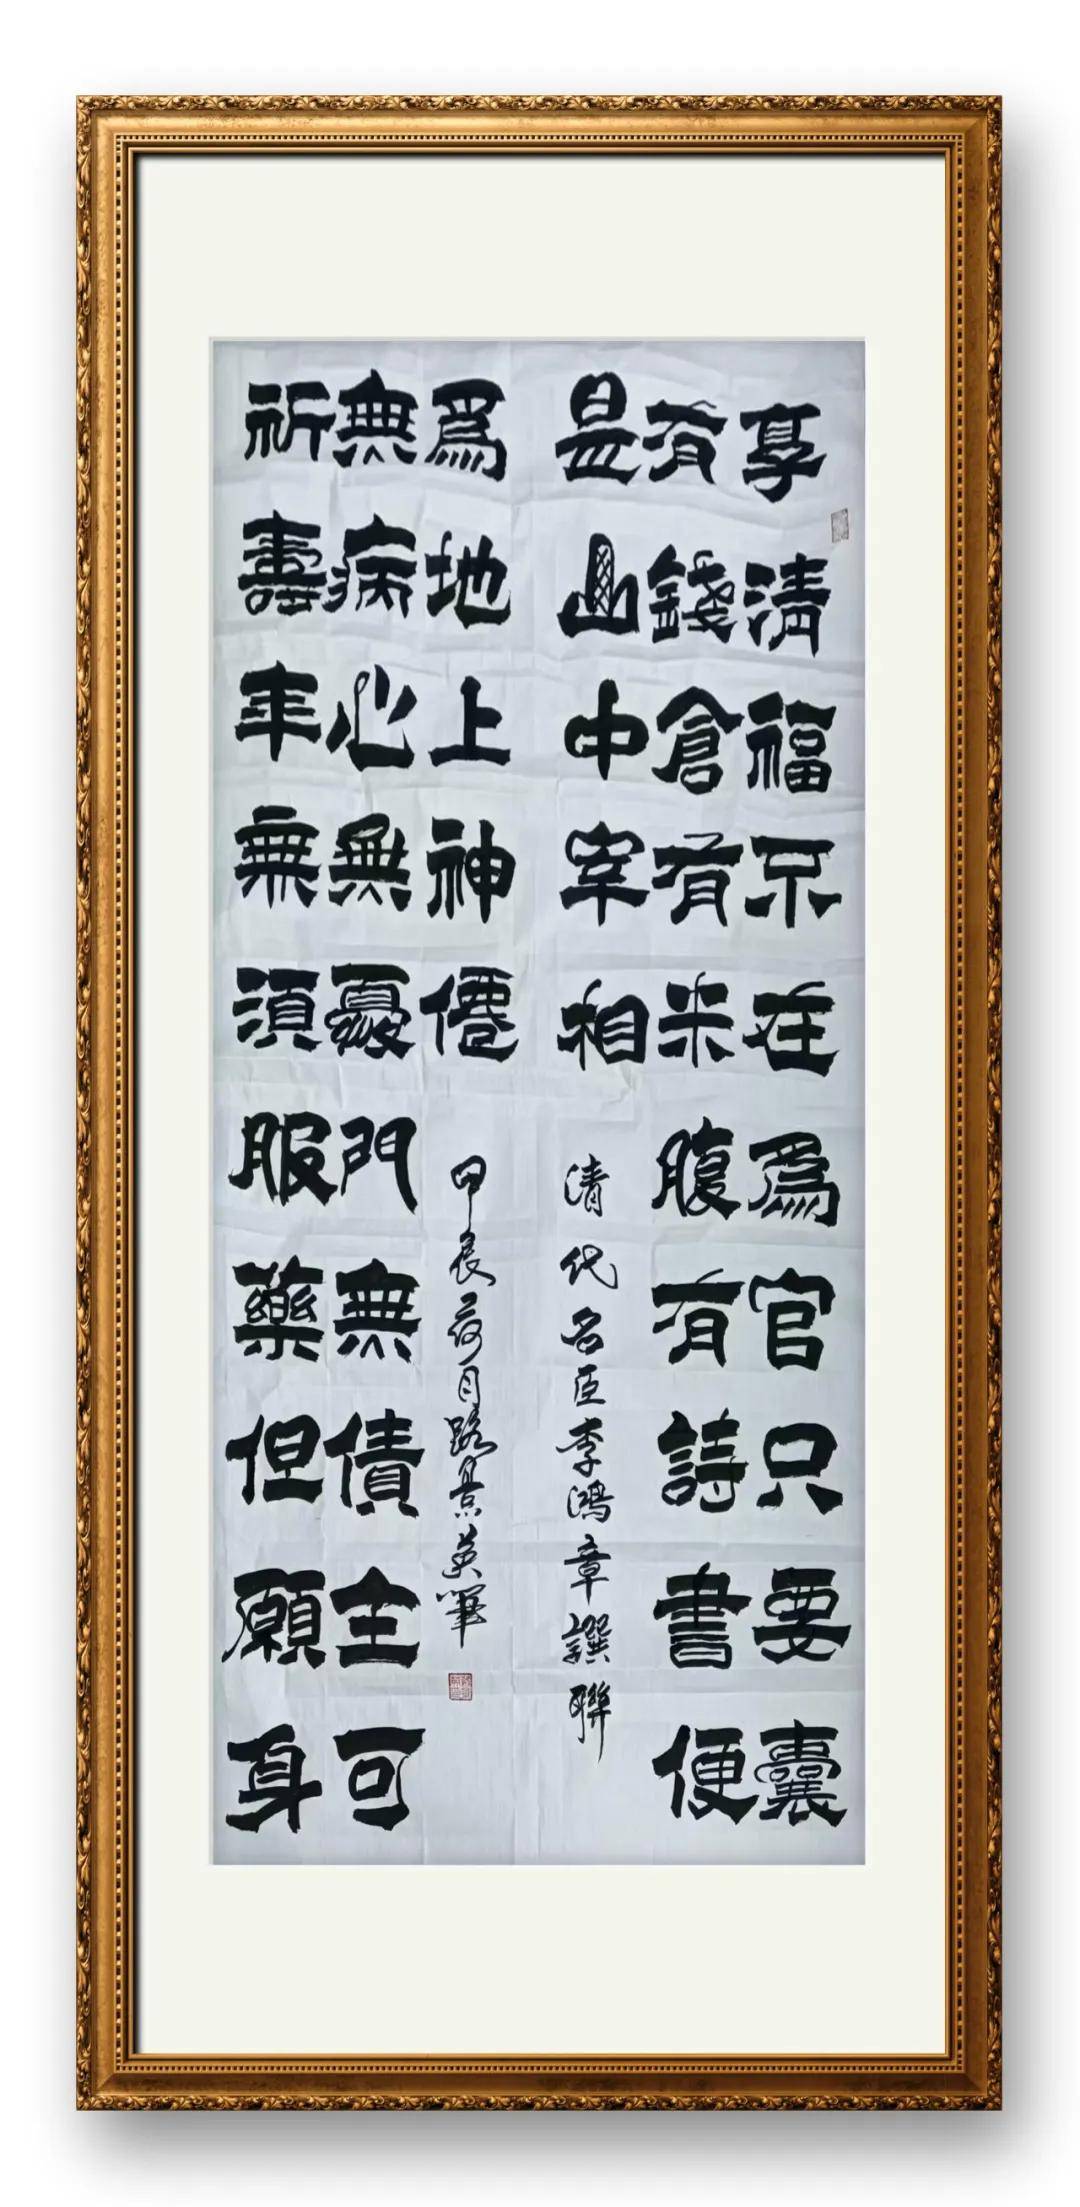 享清福不在爲官只要囊
有錢倉有米腹有詩書便
是山中宰相
清代名臣李鴻章譔聯
祈壽年無須服藥但願身
無病心無憂門無債主可
爲地上神僊
甲辰荷月路景英筆